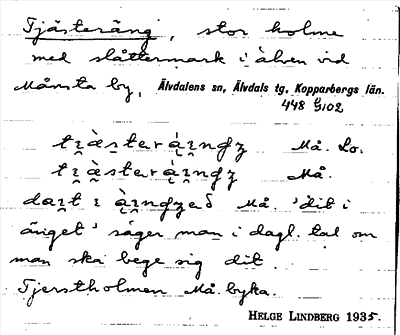 Tjästeräng, stor holme
med slåttermark i älven vid
Månsta by, Älvdalens sn, Älvdals tg, Kopparbergs län.
448 G102
Må. Lo.
Må.
Må. 'dit i
änget' säger man i dagl. tal om
man ska bege sig dit.
Tjerstholmen Må. byka.
HELGE LINDBERG 1935.